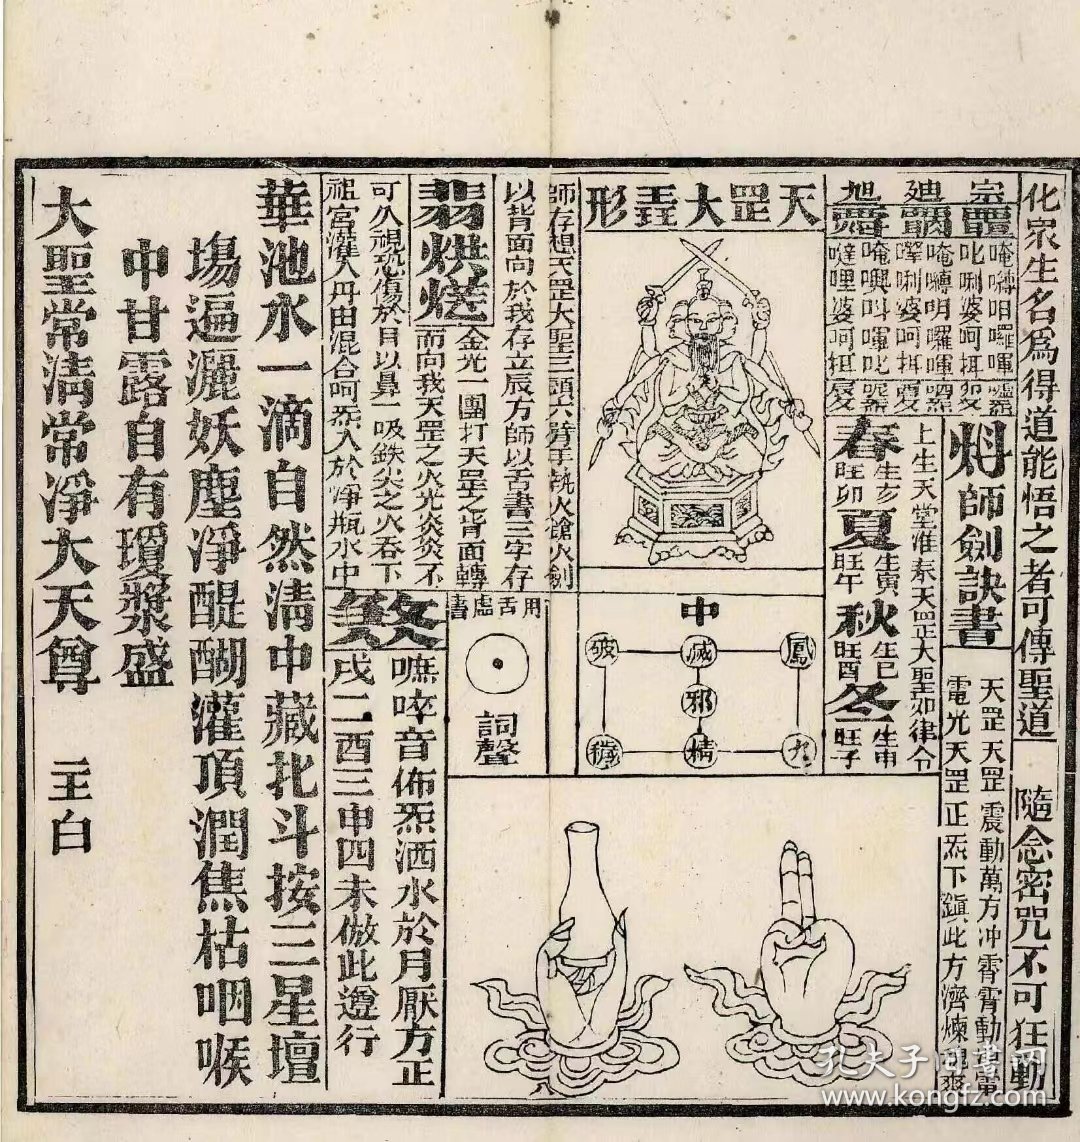 化衆生名為得道能悟之者可傳聖道
隨念密咒不可狂動
宗
廸
旭
唵囀呾囉㖶
叱唎婆呵抯
唵囀明囉㖶
㗚唎婆呵抯
唵㘕叫㖶叱
噠哩婆呵抯
師劍訣書
天罡天罡震動萬方冲霄霄動
電光天罡正炁下鎮此方濟煉
上生天堂準奉天罡大聖如律令
春生亥旺卯
夏生寅旺午
秋生巳旺酉
冬生申旺子
天罡大聖形
中
破 滅 鳳
邪
穢 精 九
師存想天罡大聖三頭六臂手執火鎗火劍
以背面向於我存立辰方師以舌書三字存
金光一團打天罡之背面轉
而向我天罡之火光炎炎不
可久視恐傷於目以鼻一吸鉄尖之火吞下
祖宮灌入丹田混合呵炁入於淨瓶水中
用舌虛書
詞聲
嘸啐音佈炁洒水於月厭方正
戌二酉三申四未倣此遵行
華池水一滴自然清中藏北斗按三星壇
場遍灑妖塵淨醍醐灌頂潤焦枯咽喉
中甘露自有瓊漿盛
大聖常清常淨大天尊
主白
孔夫子旧書网
www.kongfz.com